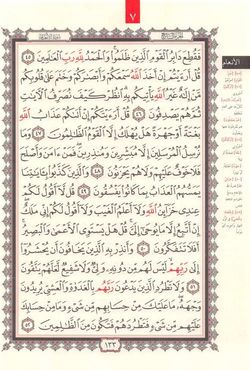 ٧
الجزء السابع
سورة الأنعام
الأنعام
فَقُطِعَ دَابِرُ ٱلْقَوْمِ ٱلَّذِينَ ظَلَمُوا۟ وَٱلْحَمْدُ لِلَّهِ رَبِّ ٱلْعَٰلَمِينَ ٤٥
قُلْ أَرَءَيْتُمْ إِنْ أَخَذَ ٱللَّهُ سَمْعَكُمْ وَأَبْصَٰرَكُمْ وَخَتَمَ عَلَىٰ قُلُوبِكُم
مَّنْ إِلَٰهٌ غَيْرُ ٱللَّهِ يَأْتِيكُم بِهِ ٱنظُرْ كَيْفَ نُصَرِّفُ ٱلْءَايَٰتِ
ثُمَّ هُمْ يَصْدِفُونَ ٤٦ قُلْ أَرَءَيْتَكُمْ إِنْ أَتَىٰكُمْ عَذَابُ ٱللَّهِ
بَغْتَةً أَوْ جَهْرَةً هَلْ يُهْلَكُ إِلَّا ٱلْقَوْمُ ٱلظَّٰلِمُونَ ٤٧ وَمَا
نُرْسِلُ ٱلْمُرْسَلِينَ إِلَّا مُبَشِّرِينَ وَمُنذِرِينَ فَمَنْ ءَامَنَ وَأَصْلَحَ
فَلَا خَوْفٌ عَلَيْهِمْ وَلَا هُمْ يَحْزَنُونَ ٤٨ وَٱلَّذِينَ كَذَّبُوا۟ بِـَٔايَٰتِنَا
يَمَسُّهُمُ ٱلْعَذَابُ بِمَا كَانُوا۟ يَفْسُقُونَ ٤٩ قُل لَّآ أَقُولُ لَكُمْ
عِندِى خَزَآئِنُ ٱللَّهِ وَلَآ أَعْلَمُ ٱلْغَيْبَ وَلَآ أَقُولُ لَكُمْ إِنِّى مَلَكٌ
إِنْ أَتَّبِعُ إِلَّا مَا يُوحَىٰٓ إِلَىَّ قُلْ هَلْ يَسْتَوِى ٱلْأَعْمَىٰ وَٱلْبَصِيرُ
أَفَلَا تَتَفَكَّرُونَ ٥٠ وَأَنذِرْ بِهِ ٱلَّذِينَ يَخَافُونَ أَن يُحْشَرُوٓا۟
إِلَىٰ رَبِّهِمْ لَيْسَ لَهُم مِّن دُونِهِۦ وَلِىٌّ وَلَا شَفِيعٌ لَّعَلَّهُمْ يَتَّقُونَ
٥١ وَلَا تَطْرُدِ ٱلَّذِينَ يَدْعُونَ رَبَّهُم بِٱلْغَدَوٰةِ وَٱلْعَشِىِّ يُرِيدُونَ
وَجْهَهُۥ مَا عَلَيْكَ مِنْ حِسَابِهِم مِّن شَىْءٍ وَمَا مِنْ حِسَابِكَ
عَلَيْهِم مِّن شَىْءٍ فَتَطْرُدَهُمْ فَتَكُونَ مِنَ ٱلظَّٰلِمِينَ ٥٢
١٣٣